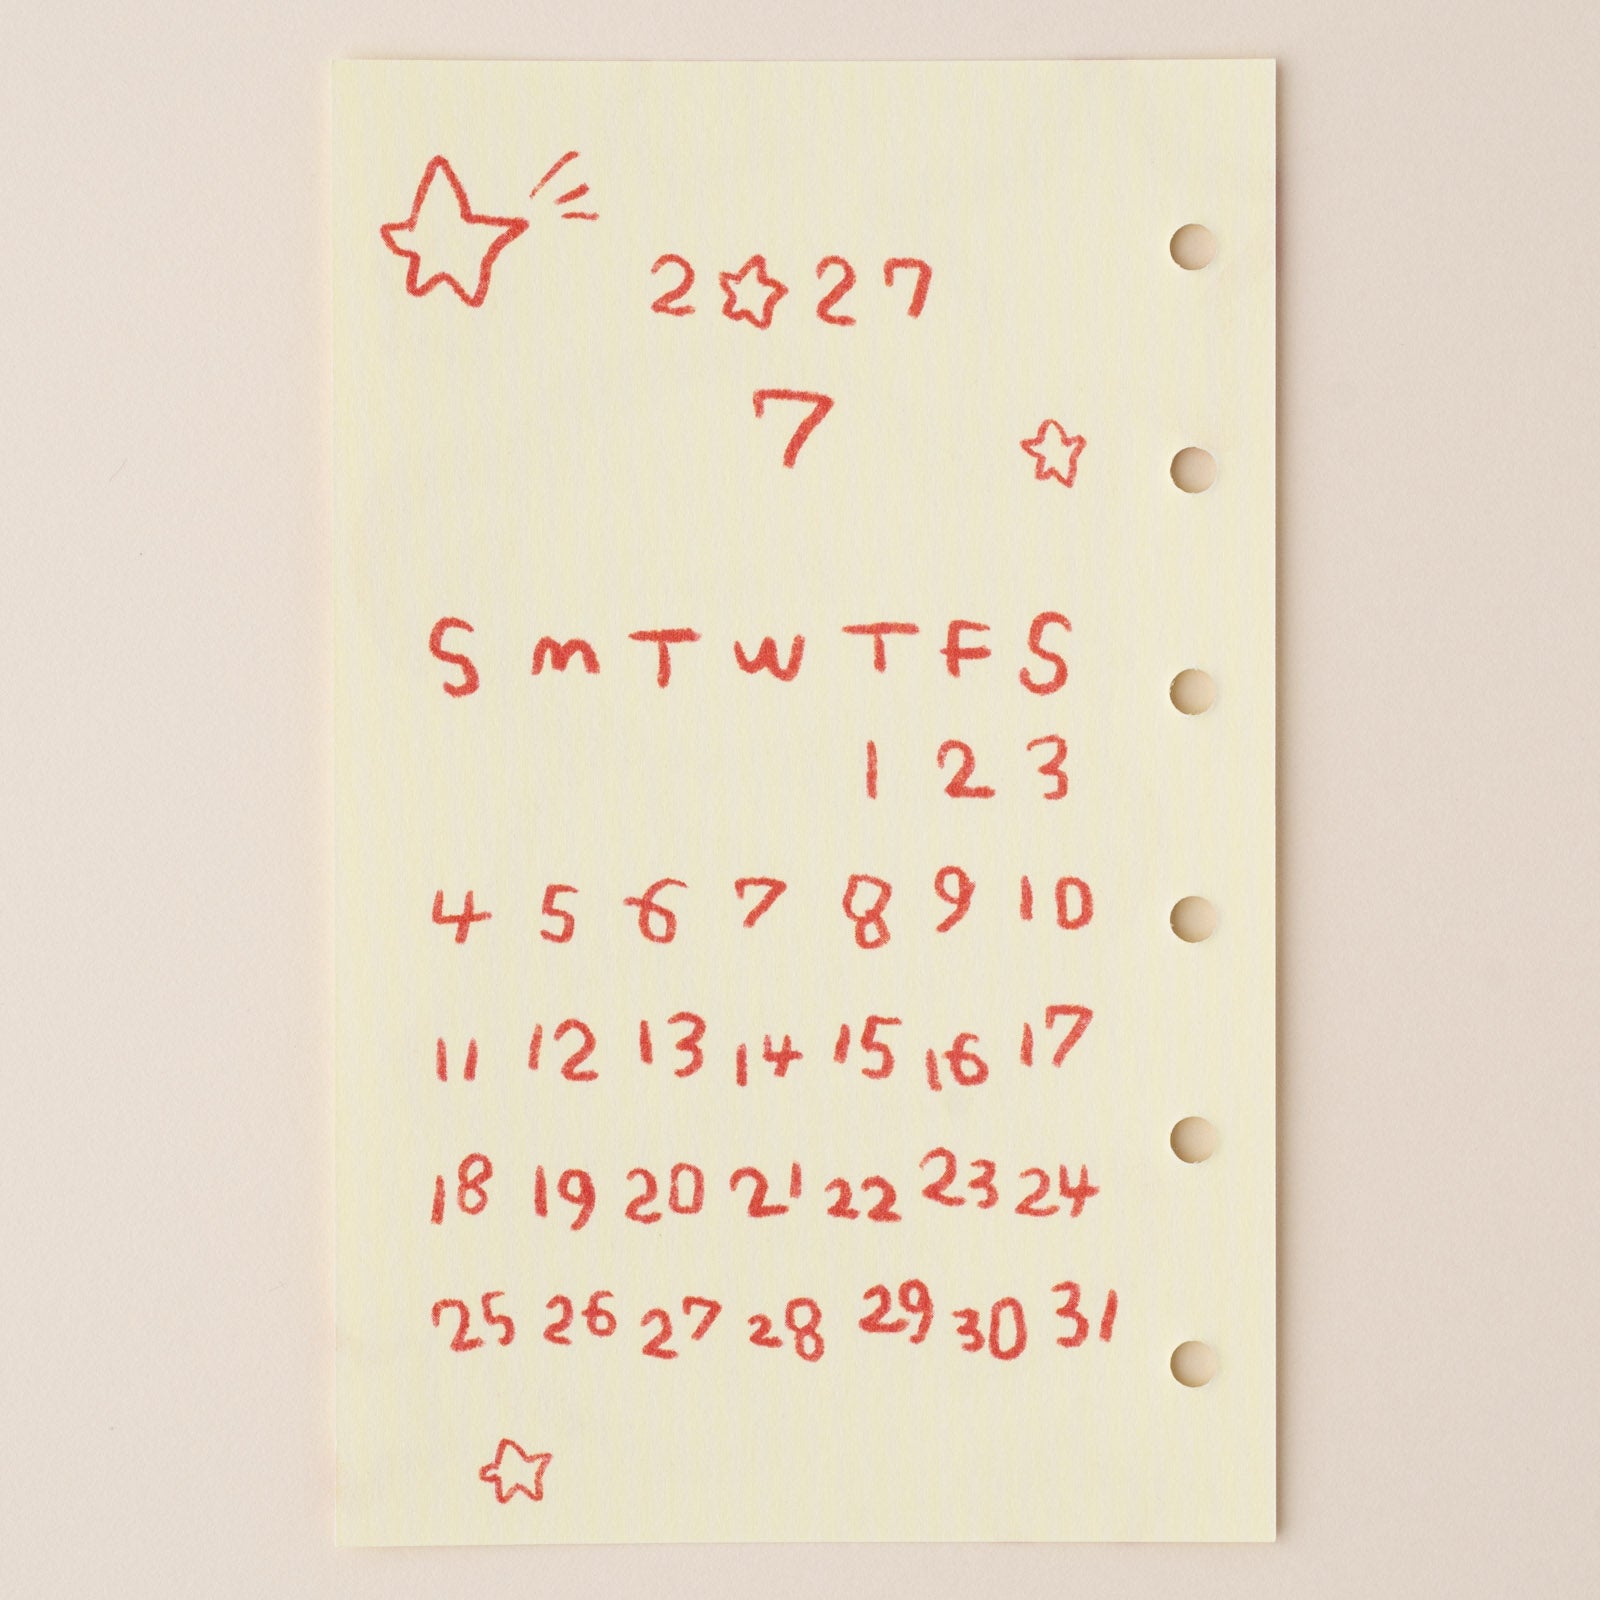 2☆27
7
S m T W T F S
1 2 3
4 5 6 7 8 9 10
11 12 13 14 15 16 17
18 19 20 21 22 23 24
25 26 27 28 29 30 31